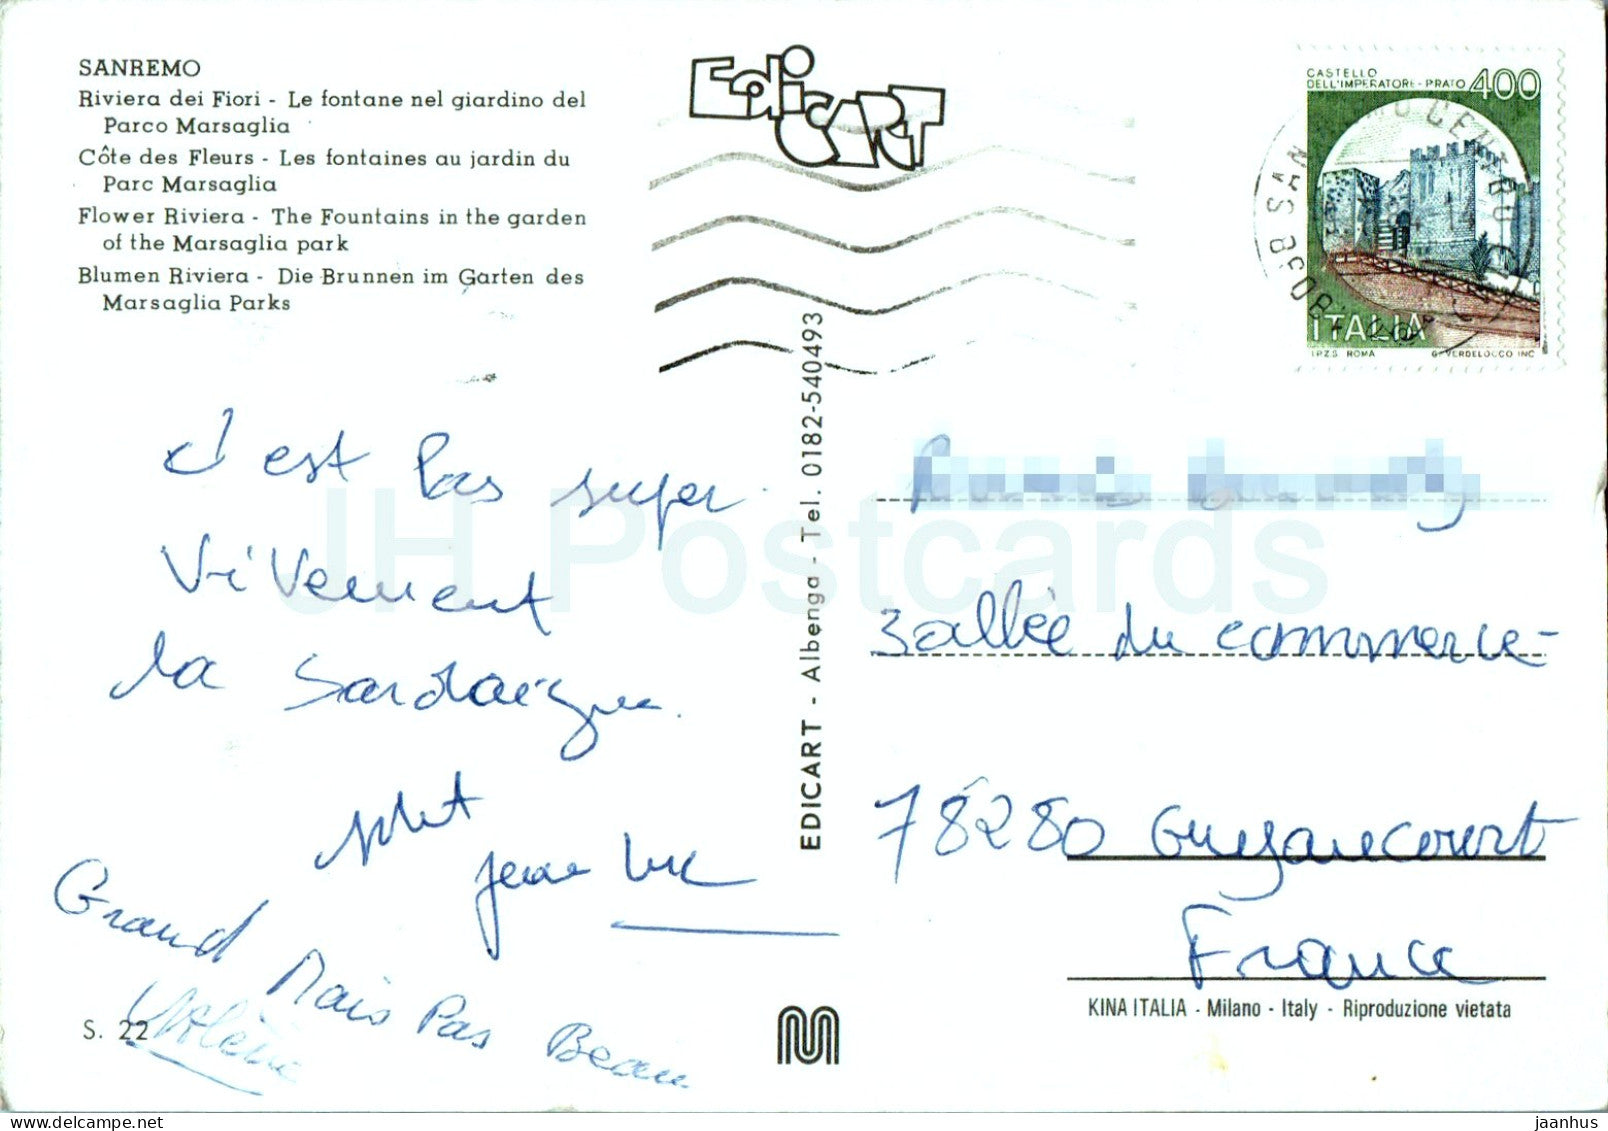 SANREMO
Riviera dei Fiori - Le fontane nel giardino del
Parco Marsaglia
Côte des Fleurs - Les fontaines au jardin du
Parc Marsaglia
Flower Riviera - The Fountains in the garden
of the Marsaglia park
Blumen Riviera - Die Brunnen im Garten des
Marsaglia Parks
EdiCART
CASTELLO
DELL'IMPERATORE - PRATO 400
ITALIA
I.P.Z.S. ROMA G. VERBELOCCO INC.
c'est pas super
Vivement
la Sardaigne.
Jean Luc
Grand Mais Pas Beau
S. 22
EDICART - Albenga - Tel. 0182-540493
3 allée du commerce -
78280 Guyancourt
France
KINA ITALIA - Milano - Italy - Riproduzione vietata
JH Postcards
www.delcampe.net
jaanhus